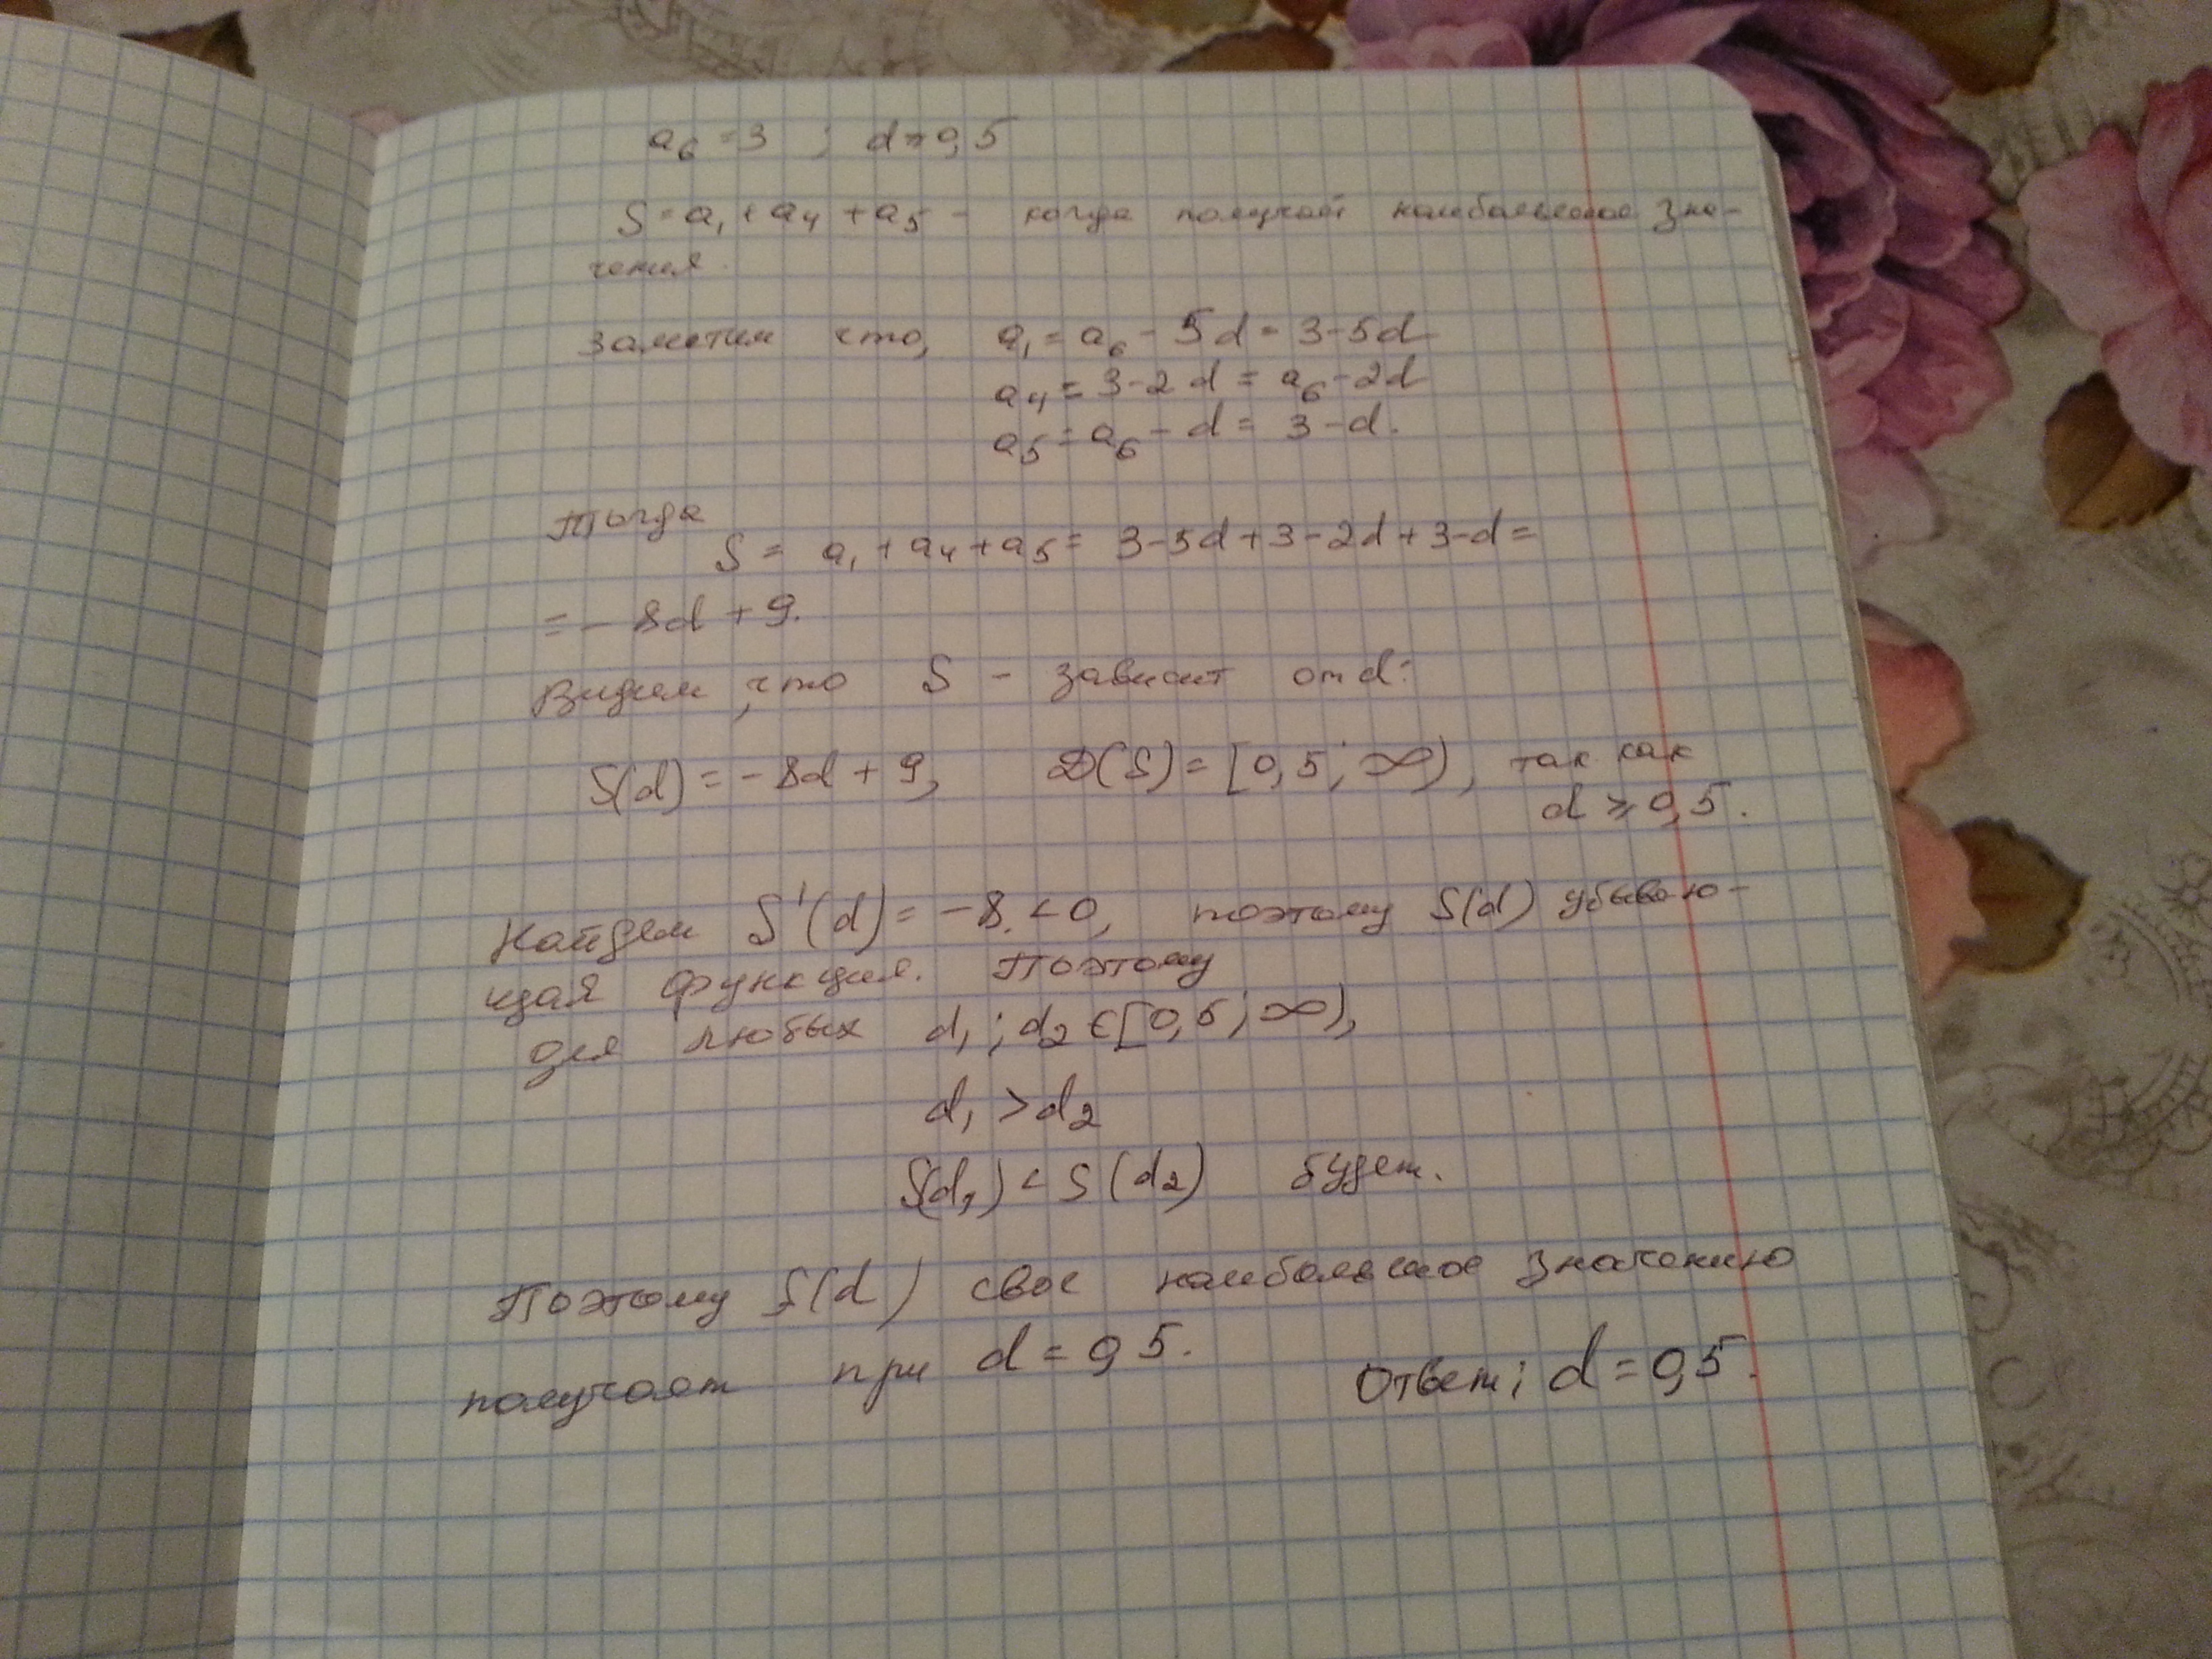 a₆ = 3 ; d ⩾ 0,5
S = a₁ + a₄ + a₅ – когда получает наибольшое зна-
чения.
заметим что, a₁ = a₆ - 5d = 3-5d
a₄ = 3-2d = a₆-2d
a₅ = a₆ - d = 3-d.
Тогда
S = a₁ + a₄ + a₅ = 3-5d+3-2d+3-d =
= - 8d + 9.
Видим, что S – зависит от d:
S(d) = -8d + 9, D(S) = [0,5; ∞), так как
d ⩾ 0,5.
Найдем S'(d) = -8 < 0, поэтому S(d) убываю-
щая функция. Поэтому
для любых d₁; d₂ ∈ [0,5; ∞),
d₁ > d₂
S(d₁) < S(d₂) будет.
Поэтому S(d) свое наибольшое значению
получает при d = 0,5.
Ответ; d = 0,5.